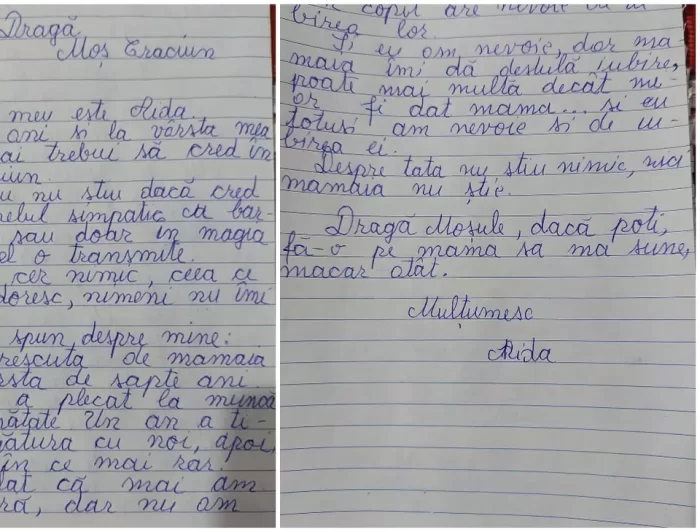 Dragă
Moș Crăciun
meu este Aida.
ani si la vârsta mea
ai trebui să cred în
iun.
u nu stiu dacă cred
relul simpatic cu bar-
sau doar in magia
el o transmite.
cer nimic, ceea ce
doresc, nimeni nu îmi
spun despre mine:
rescuta de mamaia
rsta de sapte ani.
a plecat la muncă
nătate Un an a ti-
gătura cu noi, apoi,
în ce mai rar.
lat că mai am
ră, dar nu am
copil are nevoie
birea lor.
Si eu am nevoie, dar ma
maia îmi dă destulă iubire,
poate mai multă decât mi-
ar fi dat mama... si eu
totusi am nevoie si de iu-
birea ei.
Despre tata nu stiu nimic, nici
mamaia nu știe.
Dragă Mosule, dacă poti,
fă-o pe mama sa ma sune,
macar atât.
Mulțumesc
Aida